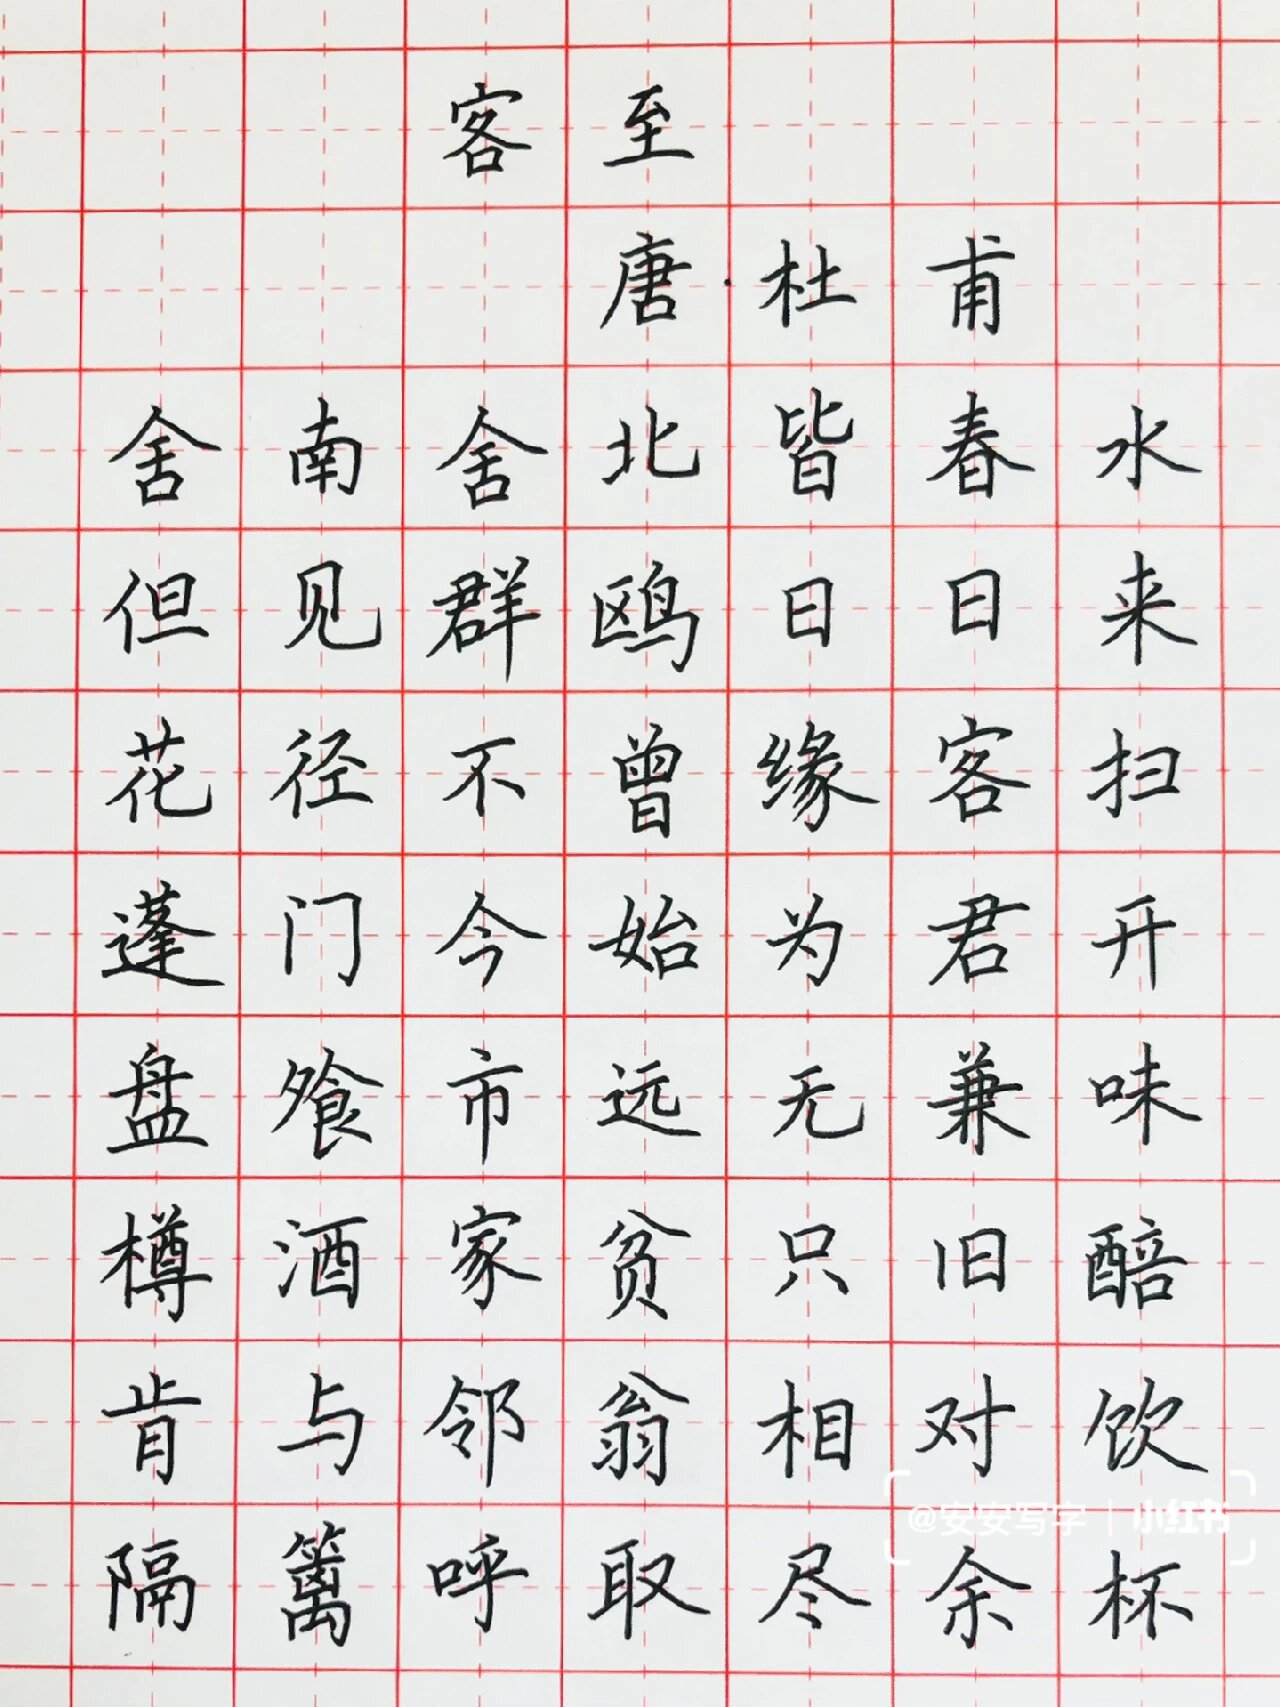 客至
唐·杜甫
舍南舍北皆春水
但见群鸥日日来
花径不曾缘客扫
蓬门今始为君开
盘飧市远无兼味
樽酒家贫只旧醅
肯与邻翁相对饮
@安安写字 | 小红书
隔篱呼取尽余杯